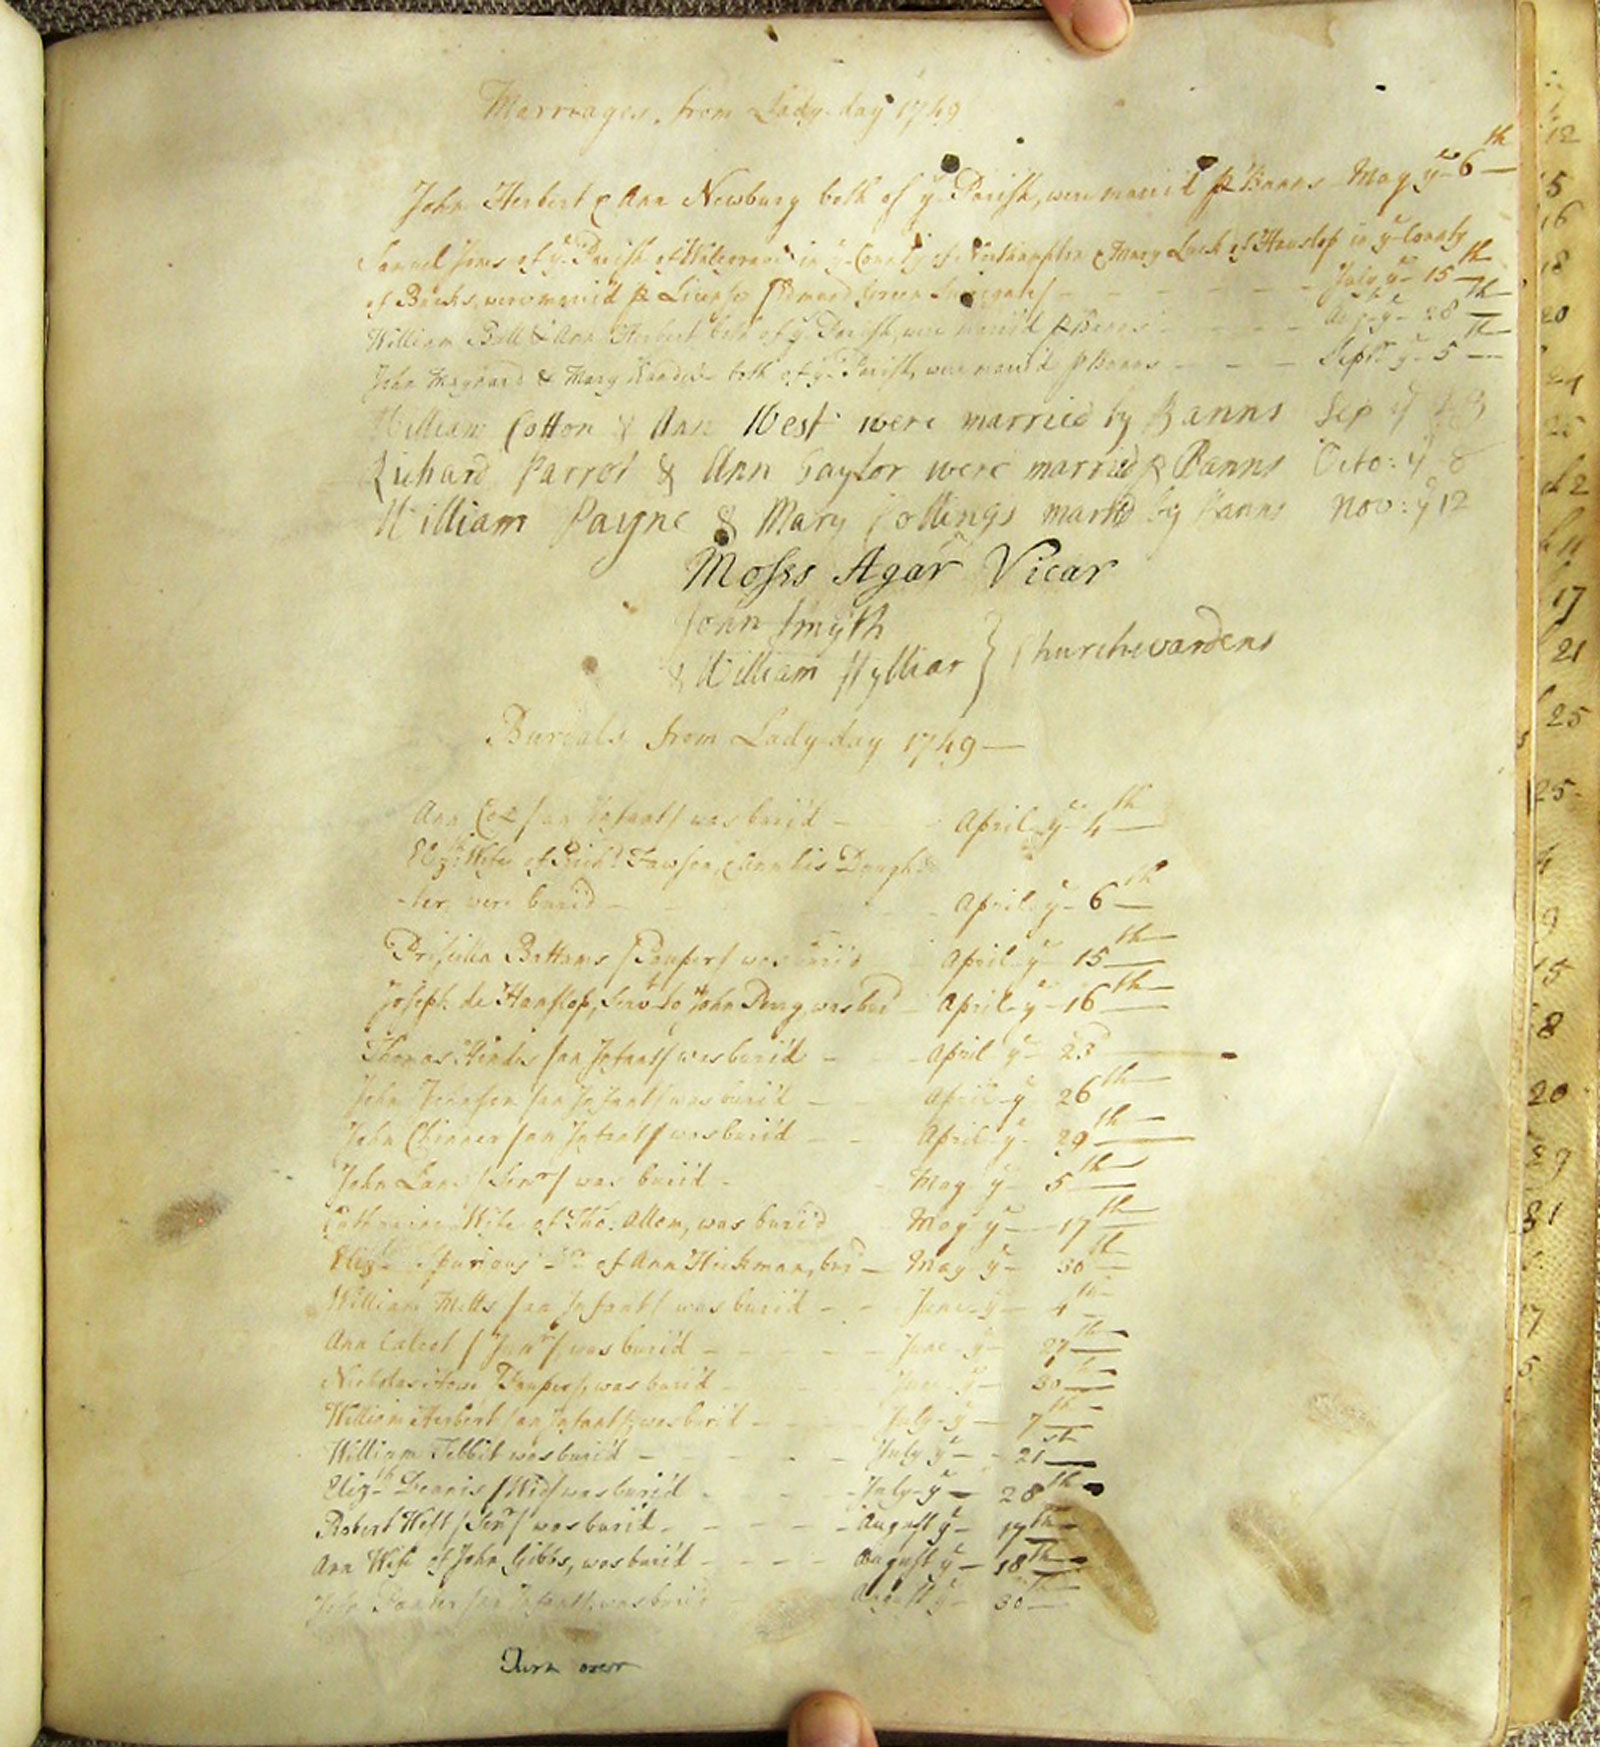 Marriages from Lady-day 1749
John Herbert & Ann Newbury both of yͤ Parish, were marri'd ꝑ Banns May yͤ 6th
Samuel of yͤ Parish of in yͤ County of Northampton & Mary Luck of Hanslop in yͤ County
of Bucks, were marri'd ꝑ Licence / Edmund Green Surrogate / July yͤ 15th
William Bull & Ann Herbert both of yͤ Parish, were marri'd ꝑ Banns Augst yͤ 28th
John Maynard & Mary both of yͤ Parish, were marri'd ꝑ Banns Septr yͤ 5th
William Cotton & Ann West were married by Banns Sep yͤ
Richard Parrot & Ann Taylor were married ꝑ Banns Octo: yͤ 8
William Payne & Mary Collings marrd by Banns Nov: yͤ 12
Moses Agar Vicar
John Smyth
& William Hylliar } Churchwardens
Burials from Lady-day 1749
Ann Cox / an Infant / was buri'd April yͤ 4th
Elizth Wife of Richd Lawson, & Ann his Daugh
-ter, were buri'd April yͤ 6th
Priscilla Bottams / Pauper / was buri'd April yͤ 15th
Joseph de Hanslop, Servt to John was bur'd April yͤ 16th
Thomas Hindes / an Infant / was buri'd April yͤ 23d
John Johnson / an Infant / was buri'd April yͤ 26th
John Chinner / an Infant / was buri'd April yͤ 29th
John Lane / Senr / was buri'd May yͤ 5th
Catharine Wife of Tho: Allen, was buri'd May yͤ 17th
Elizth Spurious Dr of Ann Hickman, bur'd May yͤ 30th
William Mills / an Infant / was buri'd June yͤ 4th
Ann / Junr / was buri'd June yͤ 27th
Nicholas Howe / Pauper /, was buri'd June yͤ 30th
William Herbert / an Infant / was buri'd July yͤ 7th
William Tebbit was buri'd July yͤ 21st
Elizth Dennis / Wid / was buri'd July yͤ 28th
Robert West / Senr / was buri'd August yͤ 17th
Ann Wife of John Gibbs, was buri'd August yͤ 18th
John / an Infant /, was buri'd August yͤ 30th
Turn over